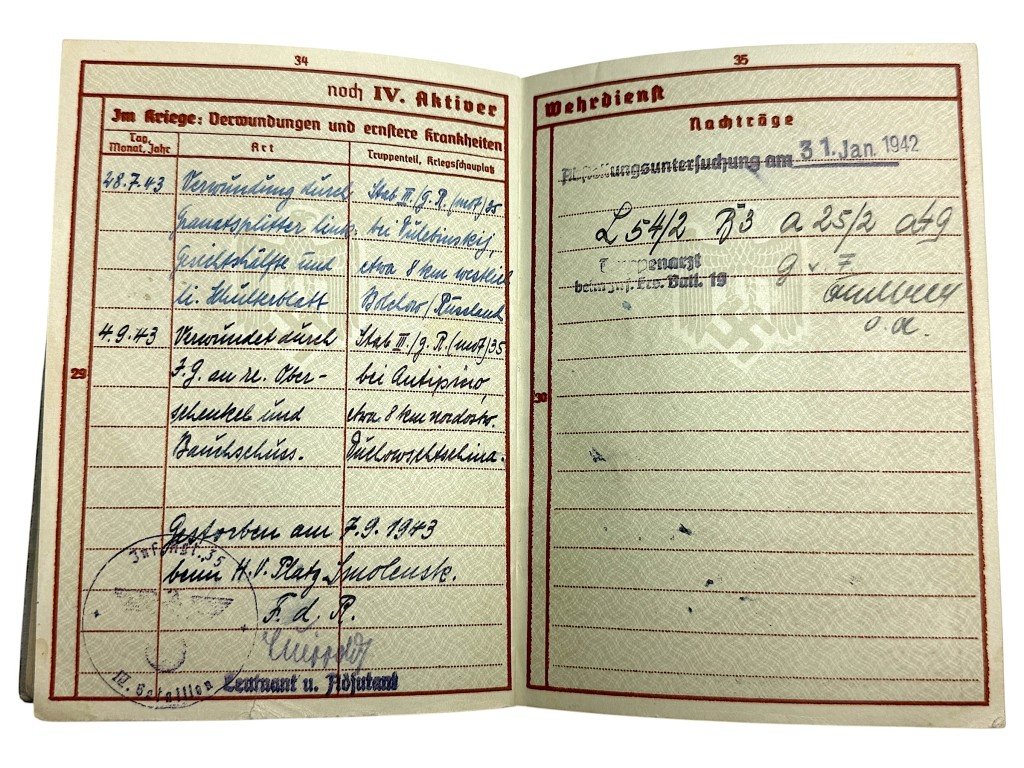 34
noch IV. Aktiver
Im Kriege: Verwundungen und ernstere Krankheiten
Tag, Monat, Jahr
Art
Truppenteil, Kriegsschauplatz
28.7.43 Verwundung durch Stab III./g.R.(mot)35
Granatsplitter linke bei
Gesichtshälfte und etwa 8 km westlich
li. Schulterblatt Bolchow/Russland
4.9.43 Verwundet durch Stab III./g.R.(mot)35
I.G. an re. Ober- bei Antipino,
schenkel und etwa 8 km nordostw.
Bauchschuss. Duchowschtschina.
29
Gestorben am 7.9.1943
beim H.V. Platz Smolensk.
F. d. R.
Leutnant u. Adjutant
Inf. Rgt. 35
III. Bataillon
35
Wehrdienst
Nachträge
Abstellungsuntersuchung am 31. Jan 1942
L 54/2 B 3 a 25/2 a 49
Truppenarzt
beim Inf. Ers. Batl. 19
g v F
30